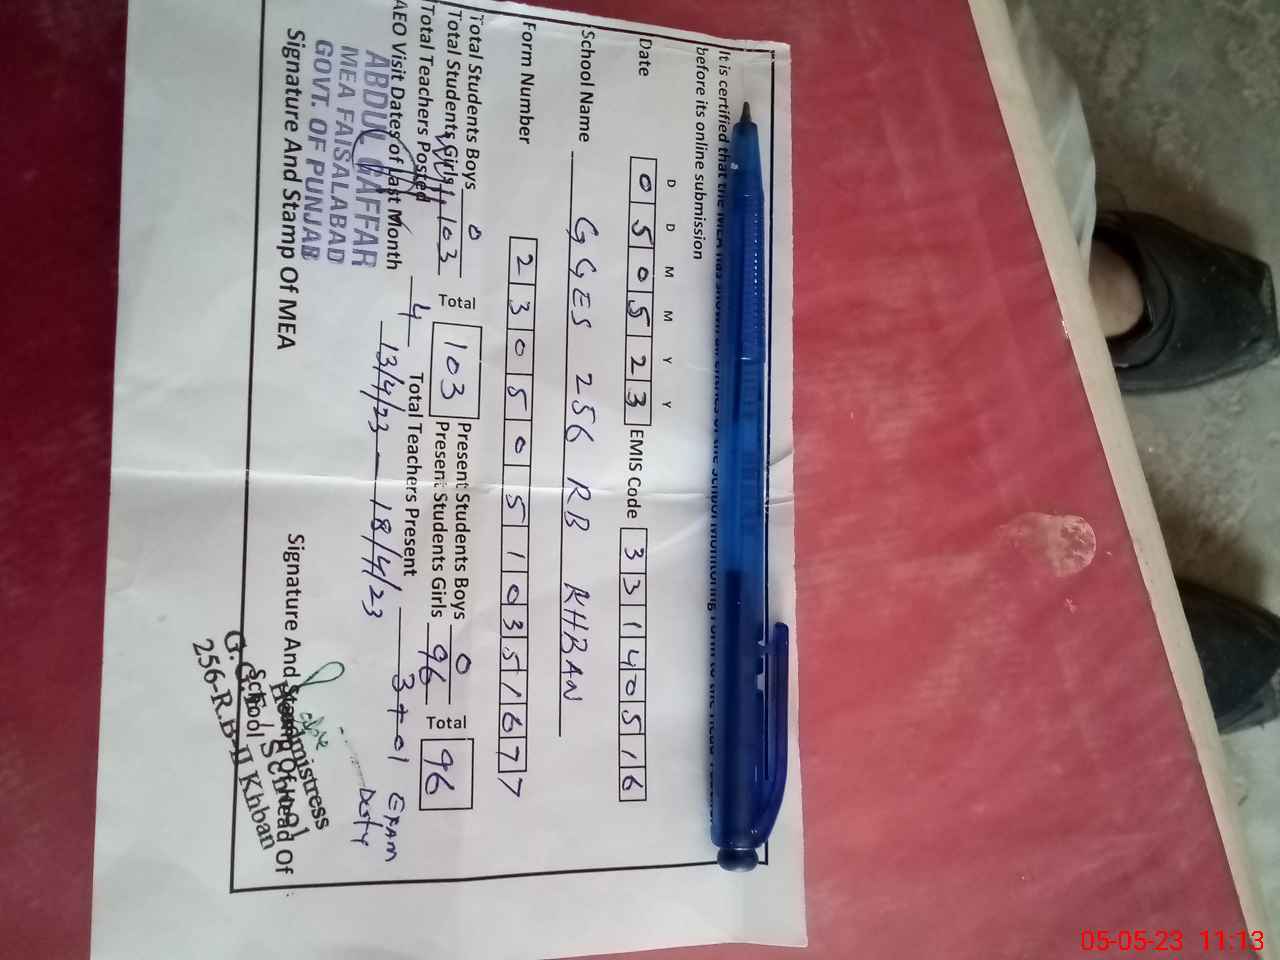 It is certified that the MEA has shown all entries of the School Monitoring Form to the Head
before its online submission
D D M M Y Y
Date 0 5 0 5 2 3 EMIS Code 3 3 1 4 0 5 1 6
School Name GGES 256 RB KHBAN
Form Number 2 3 0 5 0 5 1 0 3 5 1 6 7 7
Total Students Boys 0 Total 103 Present Students Boys 0 Total 96
Total Students Girls 103 Present Students Girls 96
Total Teachers Posted 4 Total Teachers Present 3+01 EXAM DUTY
AEO Visit Dates of Last Month 13/4/23 — 18/4/23
ABDUL GAFFAR
MEA FAISALABAD
GOVT. OF PUNJAB
Signature And Stamp Of MEA
Signature And Stamp Of Head of
School
Headmistress
256-R.B-II Khban
05-05-23 11:13